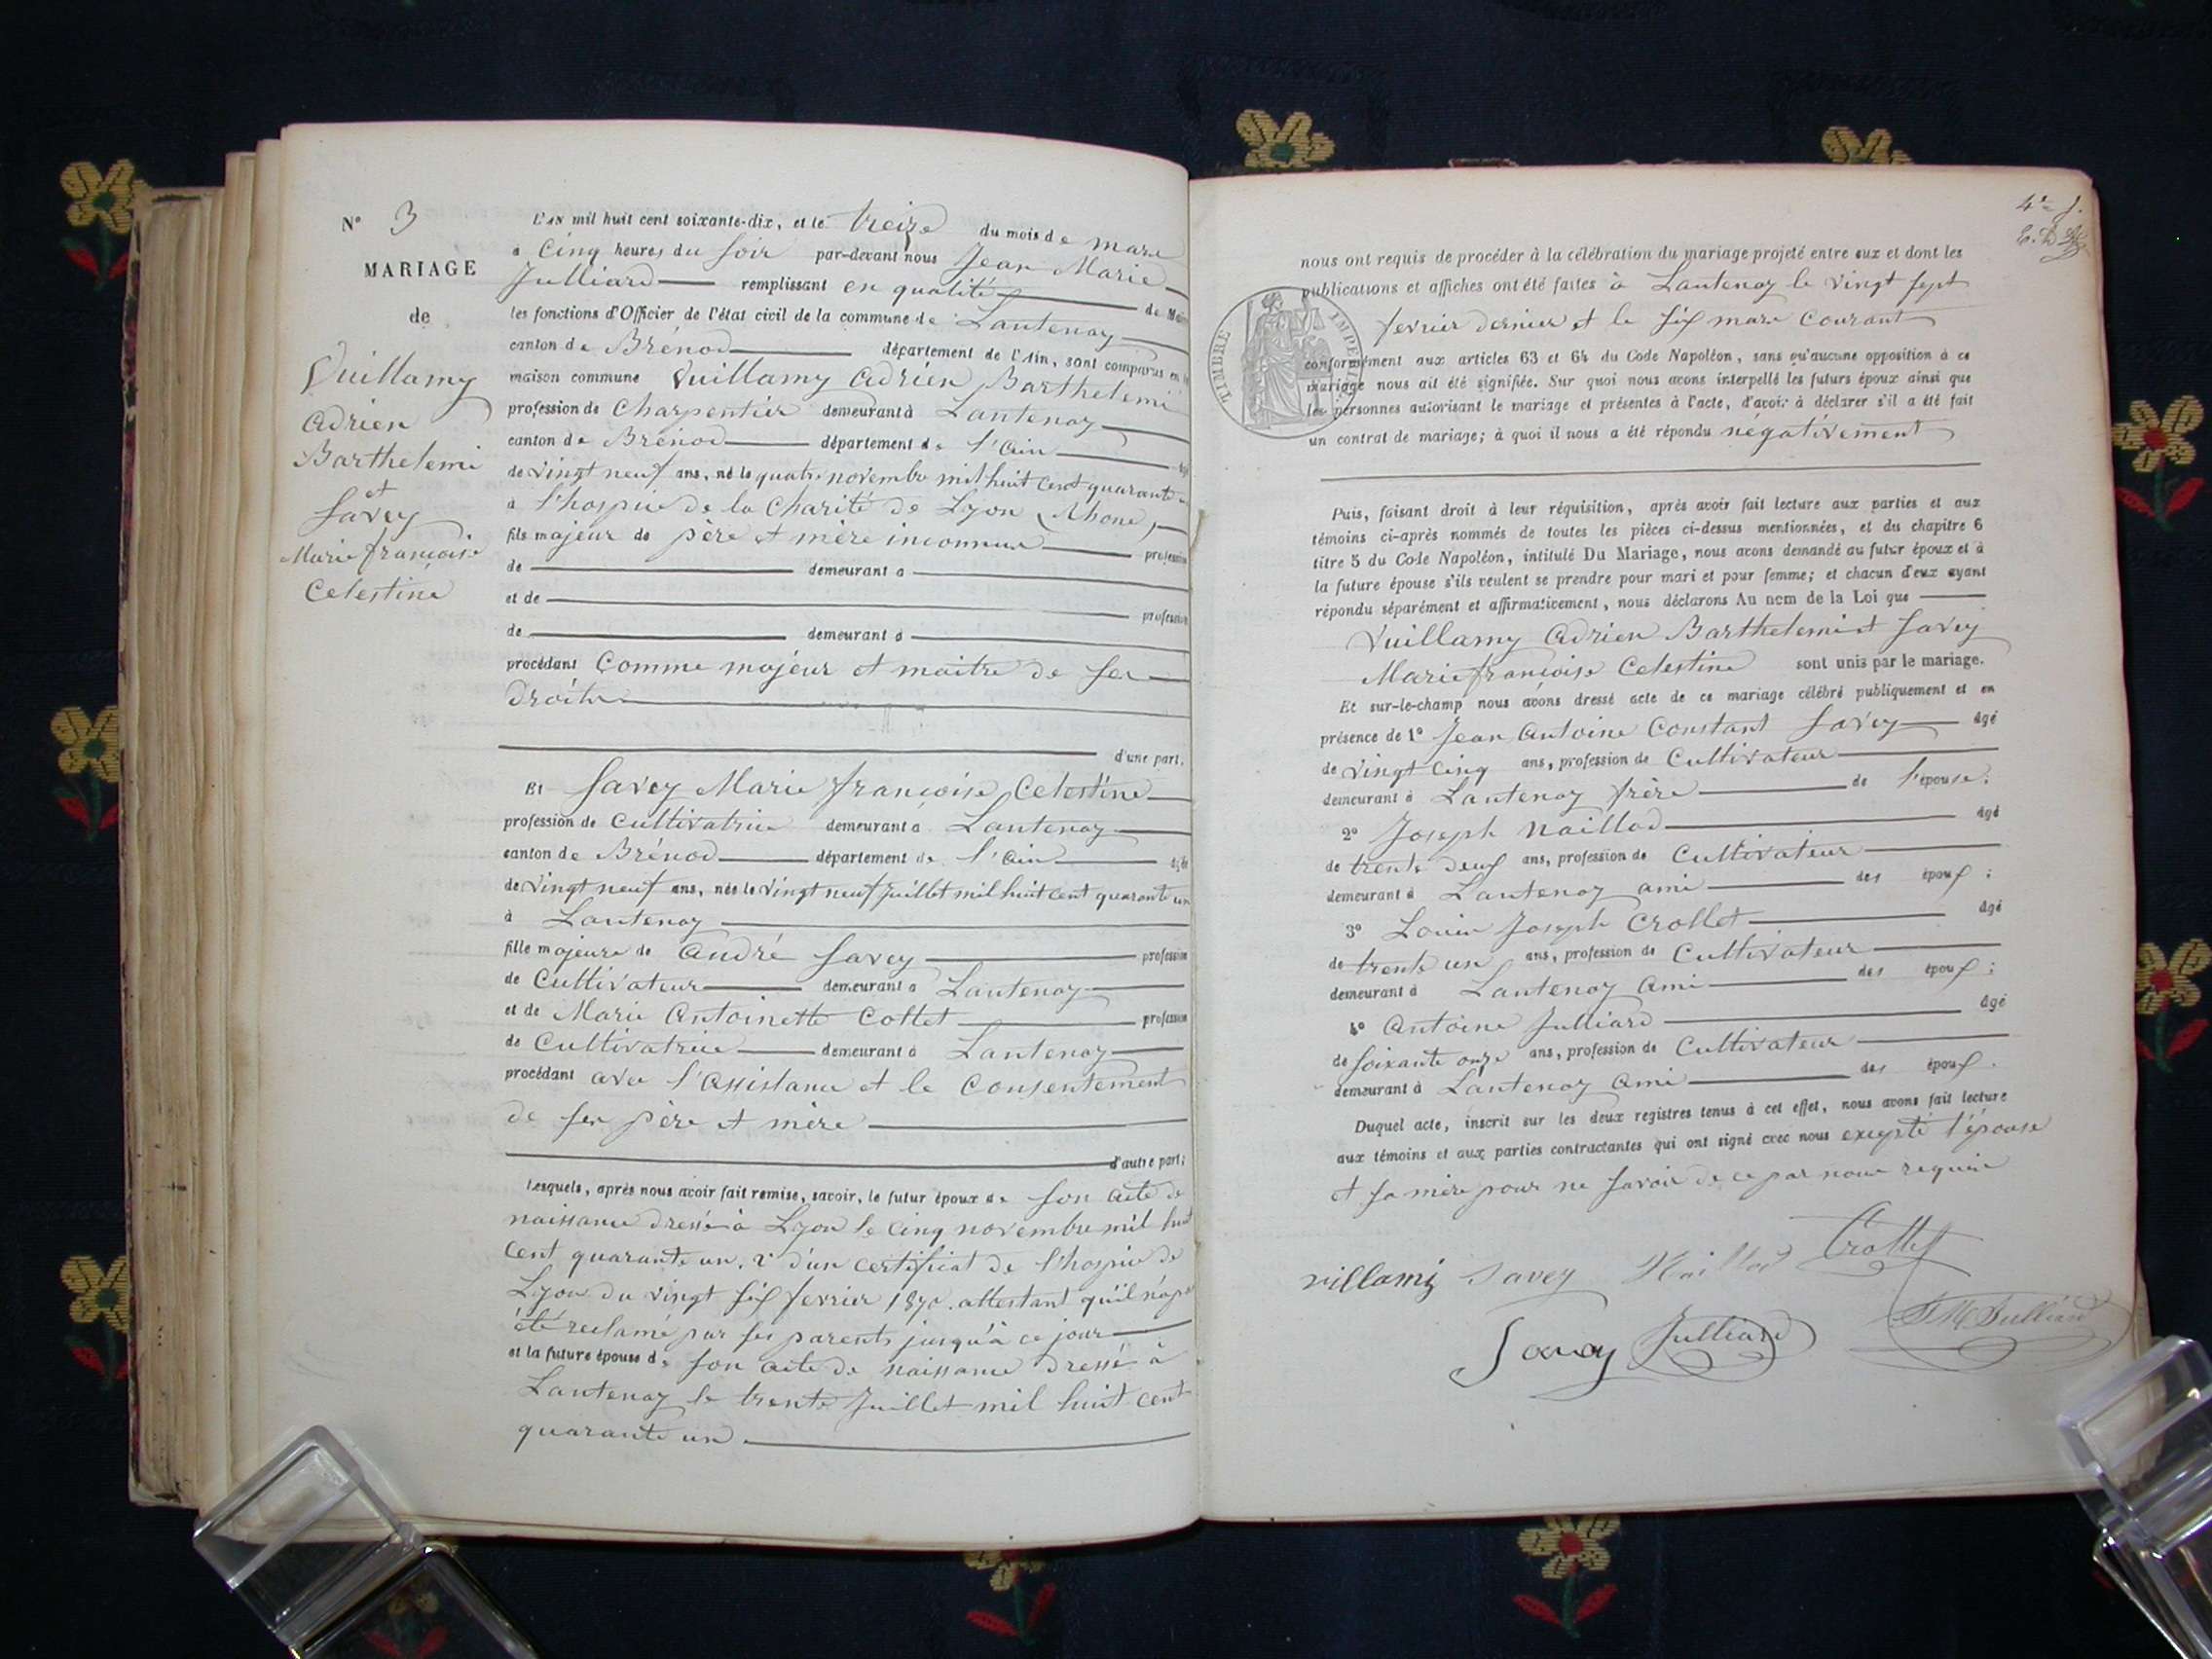 N° 3
MARIAGE
de
Vuillamy
Adrien
Barthelemi
et
Savey
Marie françoise
Celestine
L'AN mil huit cent soixante-dix, et le treize du mois de mars
à Cinq heures du soir par-devant nous Jean Marie
Julliard remplissant en qualité de Maire
les fonctions d'Officier de l'état civil de la commune de Lantenay
canton de Brénod département de l'Ain, sont comparus en la
maison commune Vuillamy Adrien Barthelemi
profession de Charpentier demeurant à Lantenay
canton de Brénod département de l'Ain âgé
de vingt neuf ans, né le quatre novembre mil huit cent quarante
à l'hospice de la Charité de Lyon (Rhone)
fils majeur de père et mère inconnus profession
de demeurant à
et de profession
de demeurant à
procédant Comme majeur et maitre de ses
droits
d'une part.
Et Savey Marie françoise Celestine
profession de Cultivatrice demeurant à Lantenay
canton de Brénod département de l'Ain âgée
de vingt neuf ans, née le vingt neuf juillet mil huit cent quarante un
à Lantenay
fille majeure de André Savey profession
de Cultivateur demeurant à Lantenay
et de Marie Antoinette Collet profession
de Cultivatrice demeurant à Lantenay
procédant avec l'assistance et le Consentement
de ses père et mère
d'autre part;
Lesquels, après nous avoir fait remise, savoir, le futur époux de son acte de
naissance dressé à Lyon le cinq novembre mil huit
cent quarante un, 2° d'un certificat de l'hospice de
Lyon du vingt six fevrier 1870 attestant qu'il n'a pas
été reclamé par ses parents jusqu'à ce jour
et la future épouse de son acte de naissance dressé à
Lantenay le trente Juillet mil huit cent
quarante un
4e f.
nous ont requis de procéder à la célébration du mariage projeté entre eux et dont les
publications et affiches ont été faites à Lantenay le vingt sept
fevrier dernier et le six mars courant
TIMBRE IMPERIAL
conformément aux articles 63 et 64 du Code Napoléon, sans qu'aucune opposition à ce
mariage nous ait été signifiée. Sur quoi nous avons interpellé les futurs époux ainsi que
les personnes autorisant le mariage et présentes à l'acte, d'avoir à déclarer s'il a été fait
un contrat de mariage; à quoi il nous a été répondu négativement
Puis, faisant droit à leur réquisition, après avoir fait lecture aux parties et aux
témoins ci-après nommés de toutes les pièces ci-dessus mentionnées, et du chapitre 6
titre 5 du Code Napoléon, intitulé Du Mariage, nous avons demandé au futur époux et à
la future épouse s'ils veulent se prendre pour mari et pour femme; et chacun d'eux ayant
répondu séparément et affirmativement, nous déclarons Au nom de la Loi que
Vuillamy Adrien Barthelemi et Savey
Marie françoise Celestine sont unis par le mariage.
Et sur-le-champ nous avons dressé acte de ce mariage célébré publiquement et en
présence de 1° Jean Antoine Constant Savey âgé
de vingt cinq ans, profession de Cultivateur
demeurant à Lantenay frère de l'épouse;
2° Joseph Naillod âgé
de trente deux ans, profession de Cultivateur
demeurant à Lantenay ami des époux;
3° Louis Joseph Crollet âgé
de trente un ans, profession de Cultivateur
demeurant à Lantenay ami des époux;
4° Antoine Julliard âgé
de soixante onze ans, profession de Cultivateur
demeurant à Lantenay ami des époux.
Duquel acte, inscrit sur les deux registres tenus à cet effet, nous avons fait lecture
aux témoins et aux parties contractantes qui ont signé avec nous excepté l'épouse
et sa mère pour ne savoir de ce par nous requis
villamy Savey Naillod Crollet
Savay Julliard JM Julliard